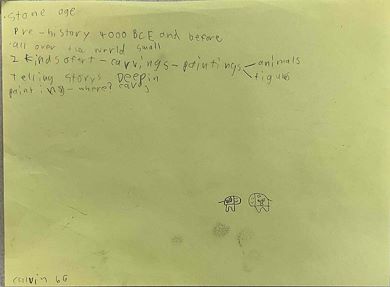 . Stone age
Pre-history 4000 BCE and before
all over the world small
2 kinds of art - carvings - paintings - animals
figures
Telling storys Deep in
painting - where? caves
calvin 6G